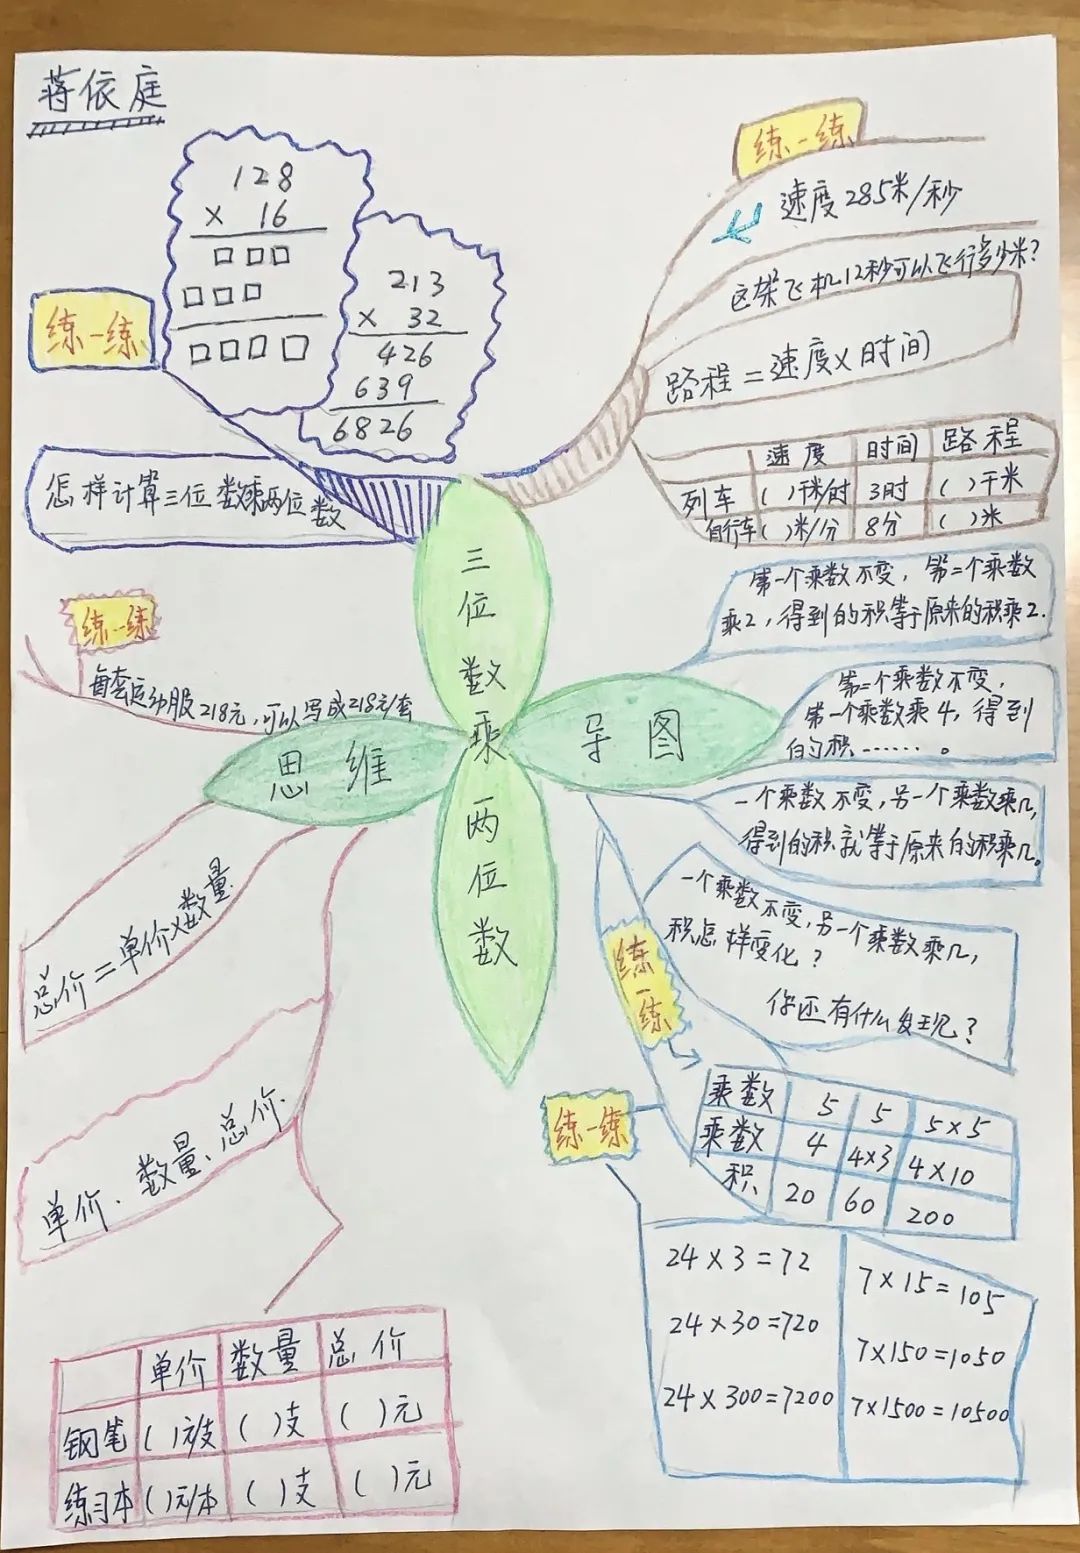 蒋依庭
128
× 16
□□□
□□□
□□□□
213
× 32
426
639
6826
练一练
怎样计算三位数乘两位数
练一练
速度285米/秒
这架飞机12秒可以飞行多少米?
路程=速度×时间
速度 时间 路程
列车 ( )千米/时 3时 ( )千米
自行车 ( )米/分 8分 ( )米
三位数乘两位数
思维导图
第一个乘数不变,第二个乘数
乘2,得到的积等于原来的积乘2.
第二个乘数不变,
第一个乘数乘4,得到
的积……。
一个乘数不变,另一个乘数乘几,
得到的积就等于原来的积乘几。
一个乘数不变,另一个乘数乘几,
积怎样变化?
你还有什么发现?
练一练
乘数 5 5 5×5
乘数 4 4×3 4×10
积 20 60 200
练一练
24×3=72
24×30=720
24×300=7200
7×15=105
7×150=1050
7×1500=10500
练一练
每套运动服218元,可以写成218元/套
总价=单价×数量
单价.数量、总价.
单价 数量 总价
钢笔 ( )元/支 ( )支 ( )元
练习本 ( )元/本 ( )支 ( )元